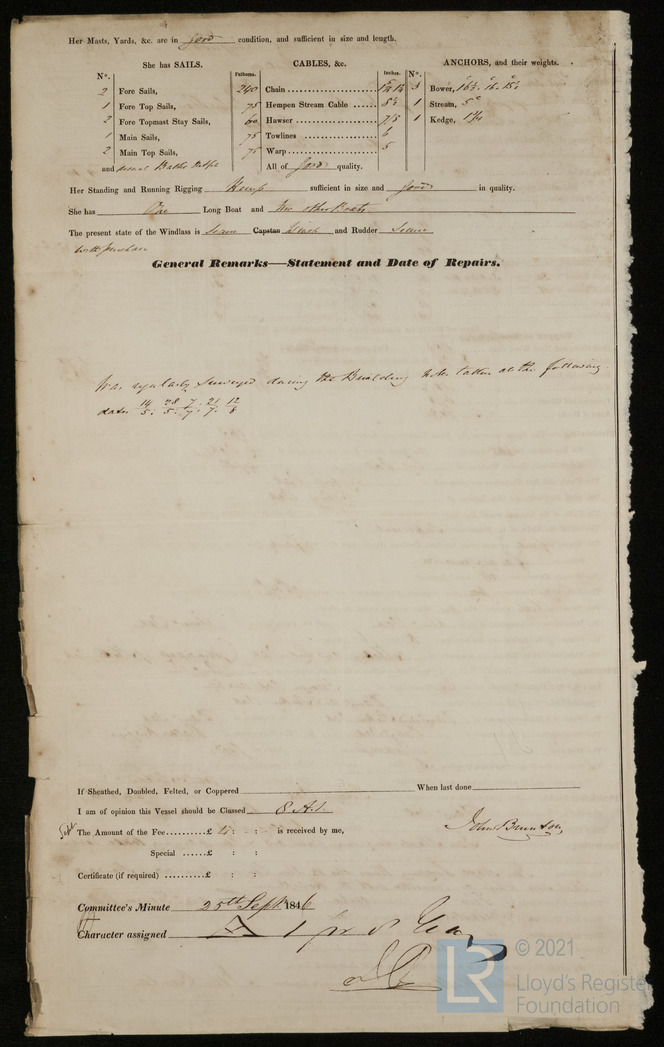 Her Masts, Yards, &c. are in good condition, and sufficient in size and length.
She has SAILS.
CABLES, &c.
ANCHORS, and their weights.
No.
Fathoms.
Inches.
No.
2 Fore Sails,
240 Chain
3 Bower,
1 Fore Top Sails,
75 Hempen Stream Cable
1 Stream, 5
2 Fore Topmast Stay Sails,
60 Hawser
1 Kedge,
1 Main Sails,
75 Towlines 6
2 Main Top Sails,
75 Warp 5
and
All of good quality.
Her Standing and Running Rigging Hemp sufficient in size and good in quality.
She has One Long Boat and two other Boats
The present state of the Windlass is Capstan Winch and Rudder
General Remarks—Statement and Date of Repairs.
Was regularly Surveyed during the Building notes taken at the following
dates 14/5: 28/5: 7/7: 21/7: 12/8
If Sheathed, Doubled, Felted, or Coppered When last done
I am of opinion this Vessel should be Classed 8 A.1.
The Amount of the Fee..........£ : : is received by me,
John Brunton
Special ......£ : :
Certificate (if required) ..........£ : :
Committee's Minute 25th Sept 1846
Character assigned A 1 for 8 Years
© 2021
LR
Lloyd's Register
Foundation